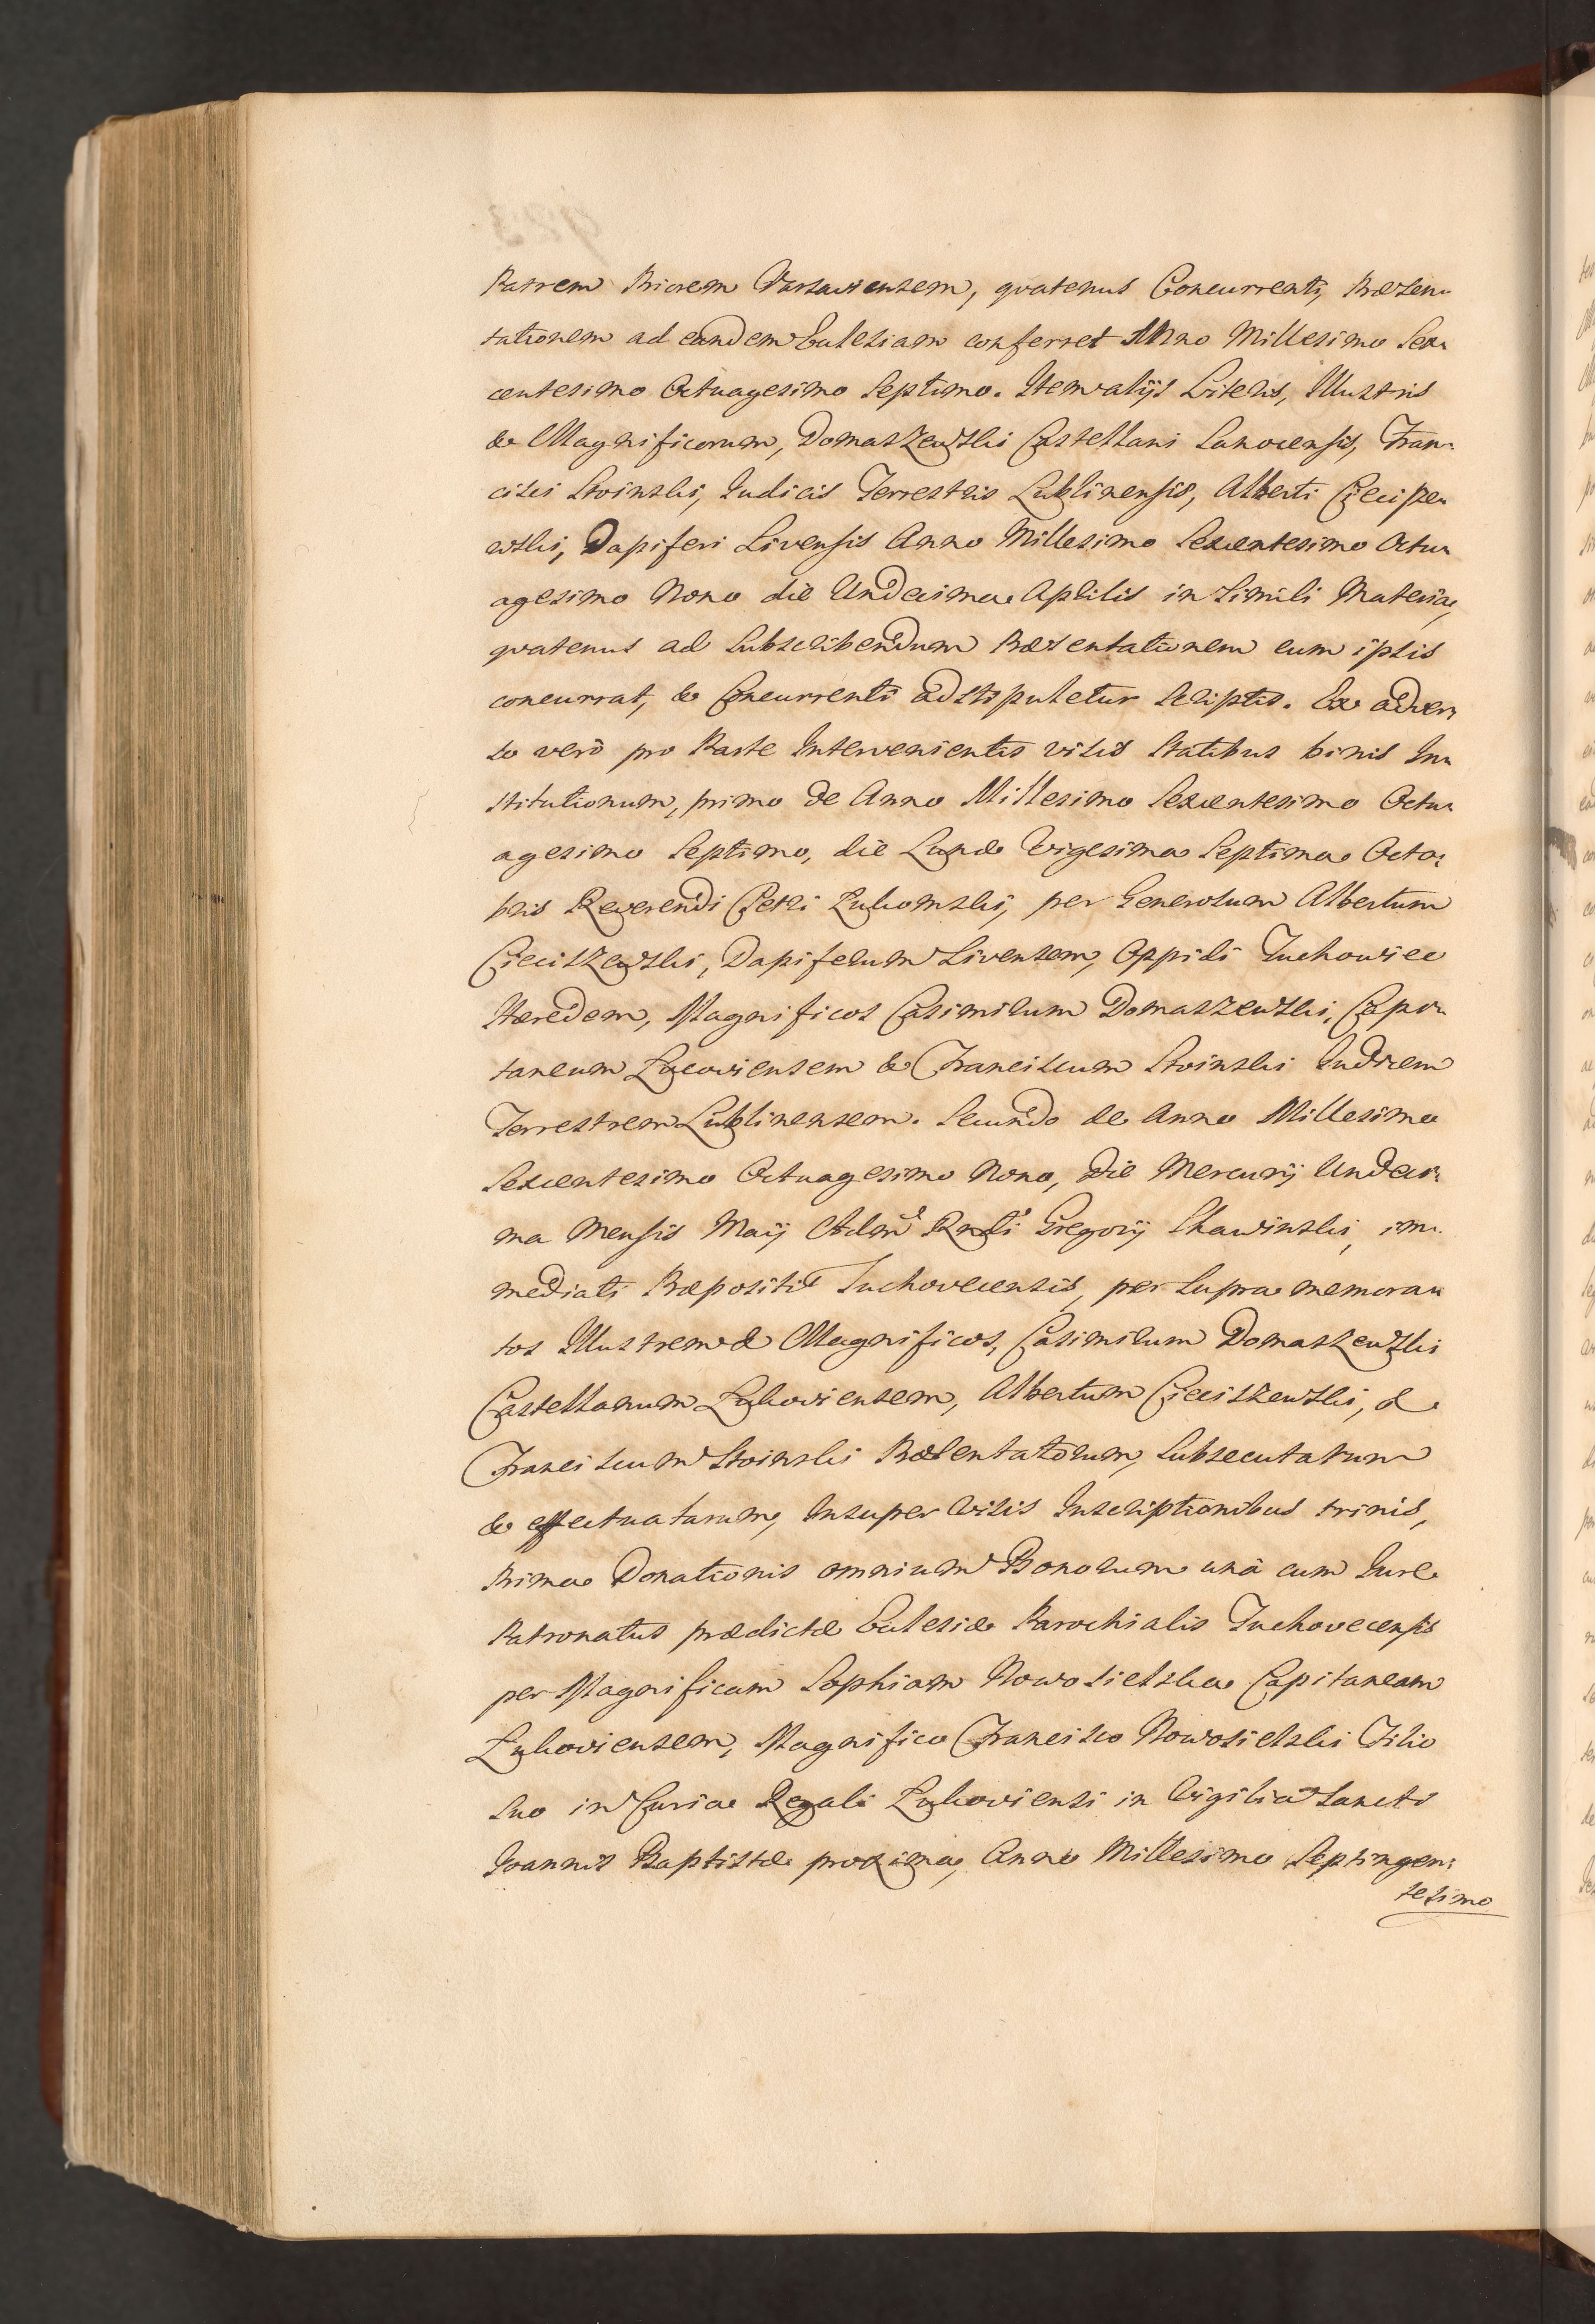 Patrem Priorem Varsaviensem, quatenus Concurrenti, Præsen-
tationem ad eandem Ecclesiam conferret Anno Millesimo Sex-
centesimo Octuagesimo Septimo. Item alijs Literis, Illustris
& Magnificorum, Domaszewski Castellani Lucoviensis, Fran-
cisci Stoinski, Judicis Terrestris Lublinensis, Alberti Cieciszew-
ewski, Dapiferi Livensis Anno Millesimo Sexcentesimo Octu-
agesimo Nono die Undecima Aprilis in simili Materia,
quatenus ad subscribendum Præsentationem cum ipsis
concurrat, & Concurrenti adstipuletur scriptis. Ex adver-
so verò pro Parte Intervenientis visis Statibus binis In-
stitutionum, primo de Anno Millesimo Sexcentesimo Octu-
agesimo Septimo, die Lunæ Vigesima Septima Octo-
bris Reverendi Petri Lukomski, per Generosum Albertum
Cieciszewski, Dapiferum Livensem, Oppidi Tuchowicc
Hæredem, Magnificos Casimirum Domaszewski, Capi-
taneum Lucoviensem & Franciscum Stoinski Judicem
Terrestrem Lublinensem. Secundo de Anno Millesimo
Sexcentesimo Octuagesimo Nono, die Mercurij Undeci-
ma Mensis Maij Adm Rndi Gregorij Skawinski, im-
mediati Præpositi Tuchovecensis, per supra memora-
tos Illustrem & Magnificos, Casimirum Domaszewski
Castellanum Lukoviensem, Albertum Cieciszewski, &
Franciscum Stoinski Præsentatorum, subsecutarum
& effectuatarum, Insuper Visis Inscriptionibus trinis,
Prima Donationis omnium Bonorum unà cum Jure
Patronatus prædictæ Ecclesiæ Parochialis Tuchovecensis
per Magnificam Sophiam Nowosielska Capitaneam
Lukoviensem, Magnifico Francisco Nowosielski Filio
suo in Curia Regali Lukoviensi in Vigilia Sancti
Joannis Baptistæ proxima, Anno Millesimo Septingen-
tesimo